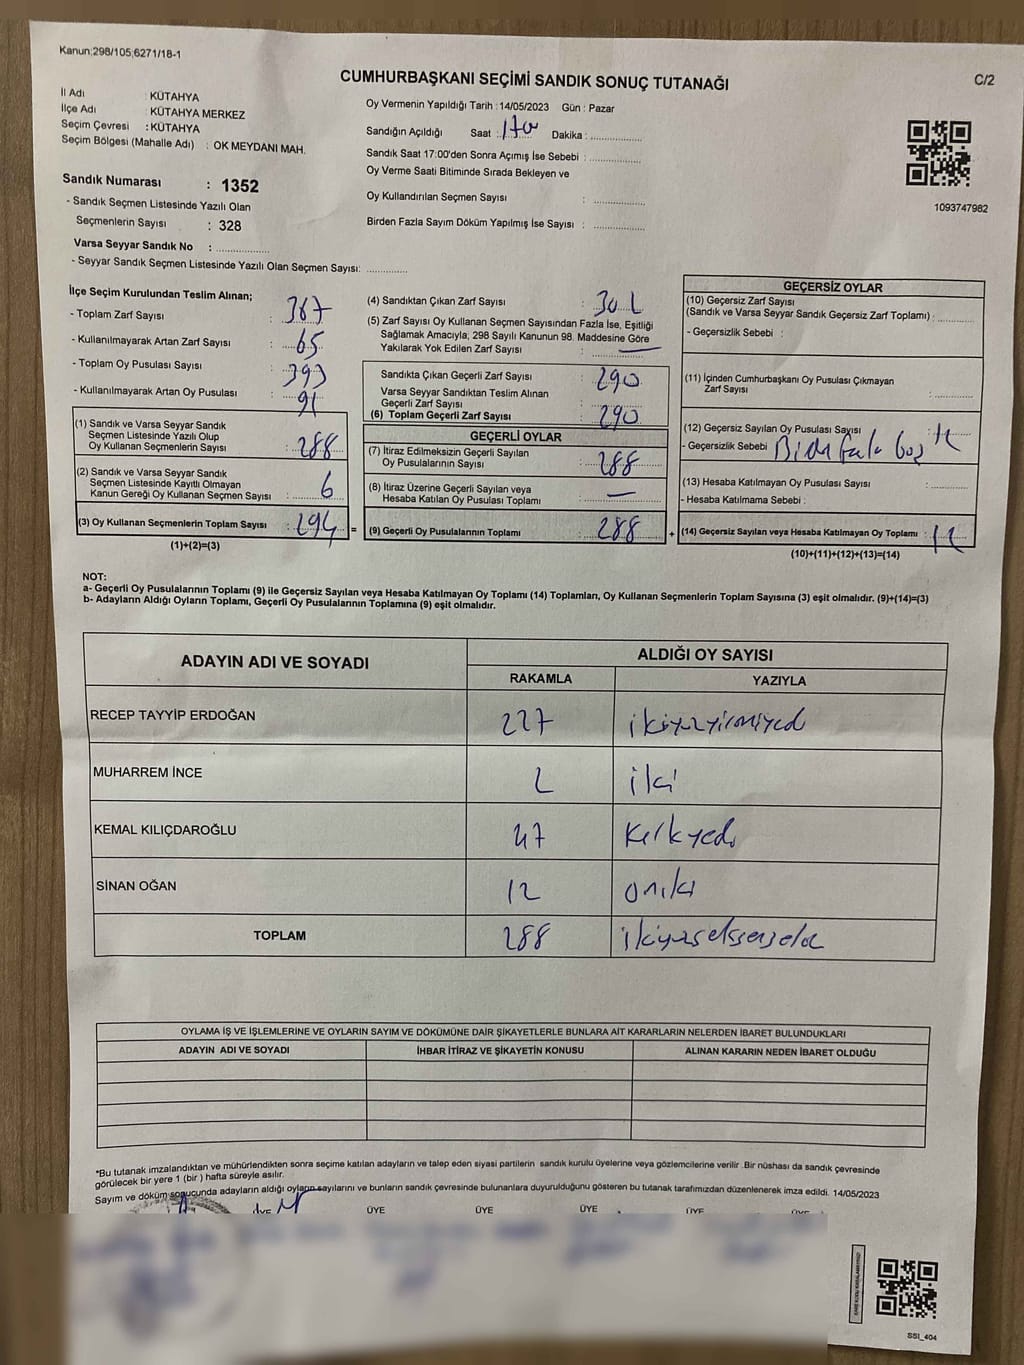 Kanun:298/105,6271/18-1
CUMHURBAŞKANI SEÇİMİ SANDIK SONUÇ TUTANAĞI
C/2
İl Adı : KÜTAHYA
İlçe Adı : KÜTAHYA MERKEZ
Seçim Çevresi : KÜTAHYA
Seçim Bölgesi (Mahalle Adı) : OK MEYDANI MAH.
Sandık Numarası : 1352
- Sandık Seçmen Listesinde Yazılı Olan
Seçmenlerin Sayısı : 328
Varsa Seyyar Sandık No :
- Seyyar Sandık Seçmen Listesinde Yazılı Olan Seçmen Sayısı:
Oy Vermenin Yapıldığı Tarih : 14/05/2023 Gün : Pazar
Sandığın Açıldığı Saat : Dakika :
Sandık Saat 17:00'den Sonra Açımış İse Sebebi :
Oy Verme Saati Bitiminde Sırada Bekleyen ve
Oy Kullandırılan Seçmen Sayısı :
Birden Fazla Sayım Döküm Yapılmış İse Sayısı :
1093747982
İlçe Seçim Kurulundan Teslim Alınan;
- Toplam Zarf Sayısı : 367
- Kullanılmayarak Artan Zarf Sayısı : 65
- Toplam Oy Pusulası Sayısı : 393
- Kullanılmayarak Artan Oy Pusulası : 91
(1) Sandık ve Varsa Seyyar Sandık
Seçmen Listesinde Yazılı Olup
Oy Kullanan Seçmenlerin Sayısı : 288
(2) Sandık ve Varsa Seyyar Sandık
Seçmen Listesinde Kayıtlı Olmayan
Kanun Gereği Oy Kullanan Seçmen Sayısı : 6
(3) Oy Kullanan Seçmenlerin Toplam Sayısı : 294 =
(1)+(2)=(3)
(4) Sandıktan Çıkan Zarf Sayısı : 302
(5) Zarf Sayısı Oy Kullanan Seçmen Sayısından Fazla İse, Eşitliği
Sağlamak Amacıyla, 298 Sayılı Kanunun 98. Maddesine Göre
Yakılarak Yok Edilen Zarf Sayısı : —
Sandıkta Çıkan Geçerli Zarf Sayısı : 290
Varsa Seyyar Sandıktan Teslim Alınan
Geçerli Zarf Sayısı :
(6) Toplam Geçerli Zarf Sayısı : 290
GEÇERLİ OYLAR
(7) İtiraz Edilmeksizin Geçerli Sayılan
Oy Pusulalarının Sayısı : 288
(8) İtiraz Üzerine Geçerli Sayılan veya
Hesaba Katılan Oy Pusulası Toplamı : —
(9) Geçerli Oy Pusulalarının Toplamı : 288 +
GEÇERSİZ OYLAR
(10) Geçersiz Zarf Sayısı
(Sandık ve Varsa Seyyar Sandık Geçersiz Zarf Toplamı) :
- Geçersizlik Sebebi :
(11) İçinden Cumhurbaşkanı Oy Pusulası Çıkmayan
Zarf Sayısı :
(12) Geçersiz Sayılan Oy Pusulası Sayısı : 12
- Geçersizlik Sebebi
(13) Hesaba Katılmayan Oy Pusulası Sayısı :
- Hesaba Katılmama Sebebi :
(14) Geçersiz Sayılan veya Hesaba Katılmayan Oy Toplamı : 12
(10)+(11)+(12)+(13)=(14)
NOT:
a- Geçerli Oy Pusulalarının Toplamı (9) ile Geçersiz Sayılan veya Hesaba Katılmayan Oy Toplamı (14) Toplamları, Oy Kullanan Seçmenlerin Toplam Sayısına (3) eşit olmalıdır. (9)+(14)=(3)
b- Adayların Aldığı Oyların Toplamı, Geçerli Oy Pusulalarının Toplamına (9) eşit olmalıdır.
ADAYIN ADI VE SOYADI ALDIĞI OY SAYISI
RAKAMLA YAZIYLA
RECEP TAYYİP ERDOĞAN 227 ikiyüzyirmiyedi
MUHARREM İNCE 2 iki
KEMAL KILIÇDAROĞLU 47 Kırkyedi
SİNAN OĞAN 12 oniki
TOPLAM 288 ikiyüzseksensekiz
OYLAMA İŞ VE İŞLEMLERİNE VE OYLARIN SAYIM VE DÖKÜMÜNE DAİR ŞİKAYETLERLE BUNLARA AİT KARARLARIN NELERDEN İBARET BULUNDUKLARI
ADAYIN ADI VE SOYADI İHBAR İTİRAZ VE ŞİKAYETİN KONUSU ALINAN KARARIN NEDEN İBARET OLDUĞU
*Bu tutanak imzalandıktan ve mühürlendikten sonra seçime katılan adayların ve talep eden siyasi partilerin sandık kurulu üyelerine veya gözlemcilerine verilir .Bir nüshası da sandık çevresinde
görülecek bir yere 1 (bir ) hafta süreyle asılır.
Sayım ve döküm sonucunda adayların aldığı oyların sayılarını ve bunların sandık çevresinde bulunanlara duyurulduğunu gösteren bu tutanak tarafımızdan düzenlenerek imza edildi. 14/05/2023
ÜYE ÜYE ÜYE ÜYE ÜYE
SSI_404